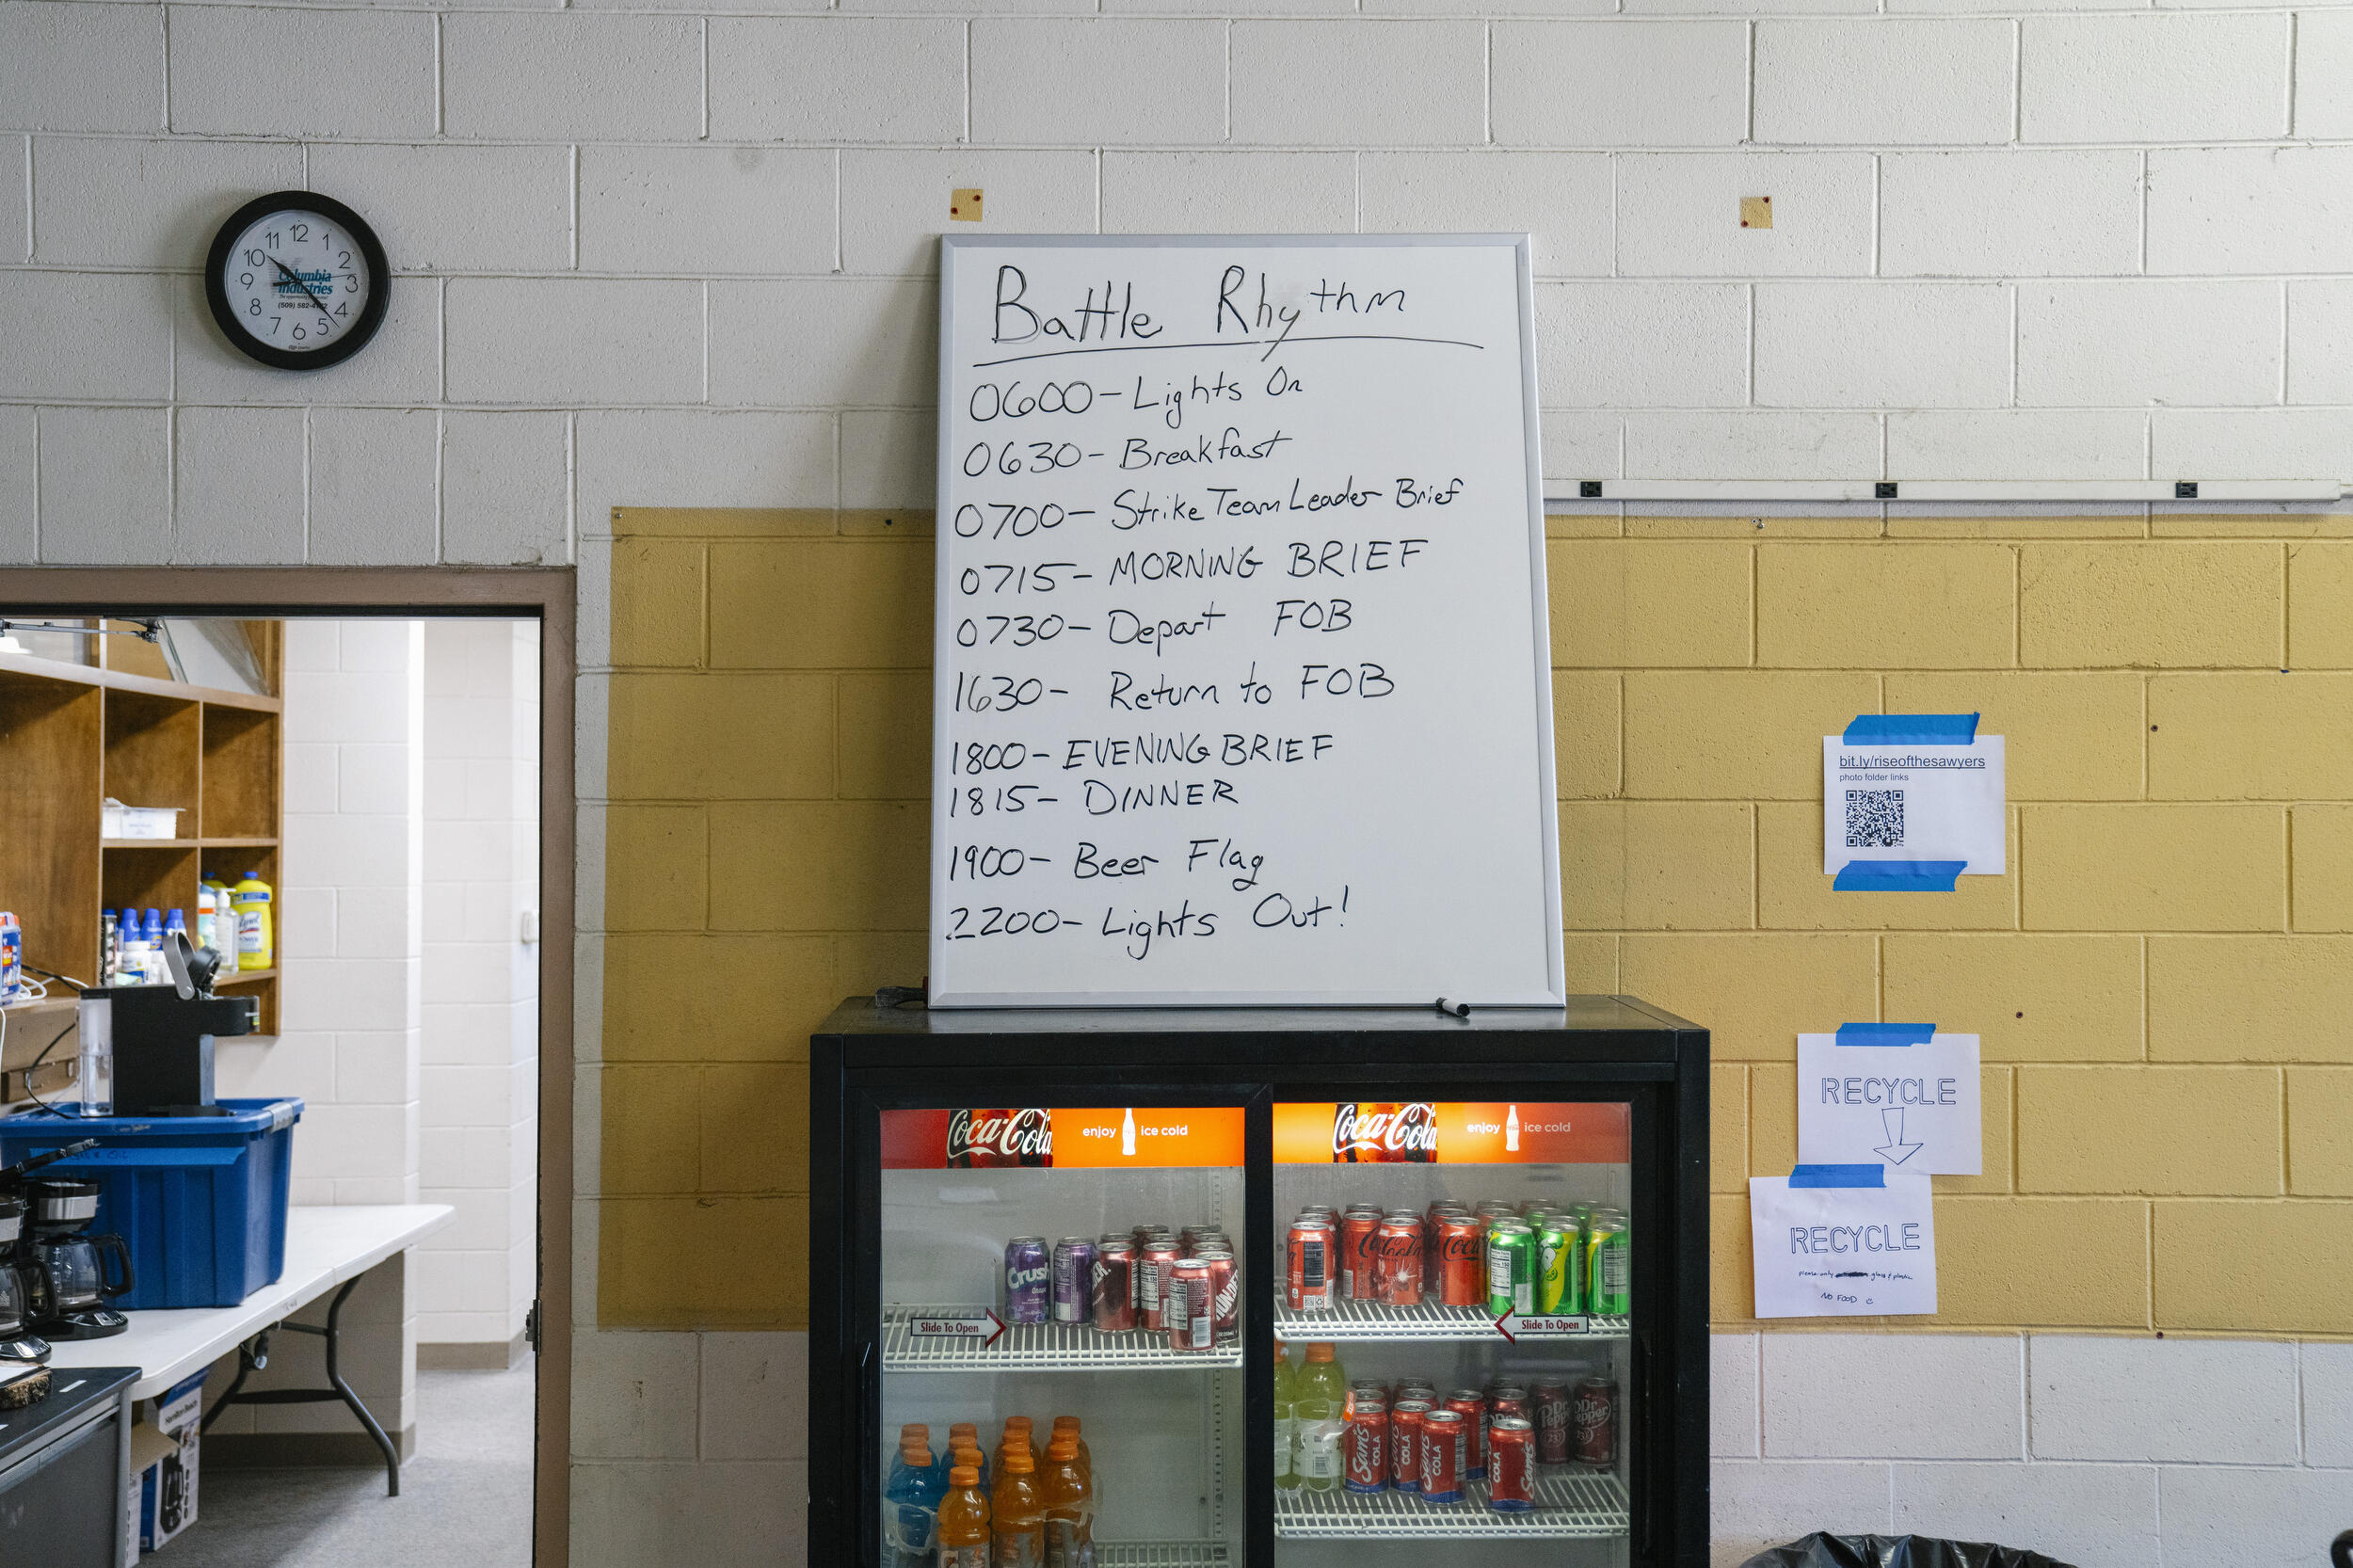 12
1
2
3
4
5
6
7
8
9
10
11
Columbia
Industries
Battle Rhythm
0600- Lights On
0630- Breakfast
0700- Strike Team Leader Brief
0715- MORNING BRIEF
0730- Depart FOB
1630- Return to FOB
1800- EVENING BRIEF
1815- DINNER
1900- Beer Flag
2200- Lights Out!
bit.ly/riseofthesawyers
photo folder links
RECYCLE
RECYCLE
please only glass & plastic
NO FOOD
Coca-Cola enjoy ice cold
Coca-Cola enjoy ice cold
Crush
Coca-Cola
Coca
Slide To Open
Slide To Open
Sam's
COLA
Sam's
COLA
Sam's
COLA
COLA
Sam's
Dr Pepper
23
Dr Pepper
23